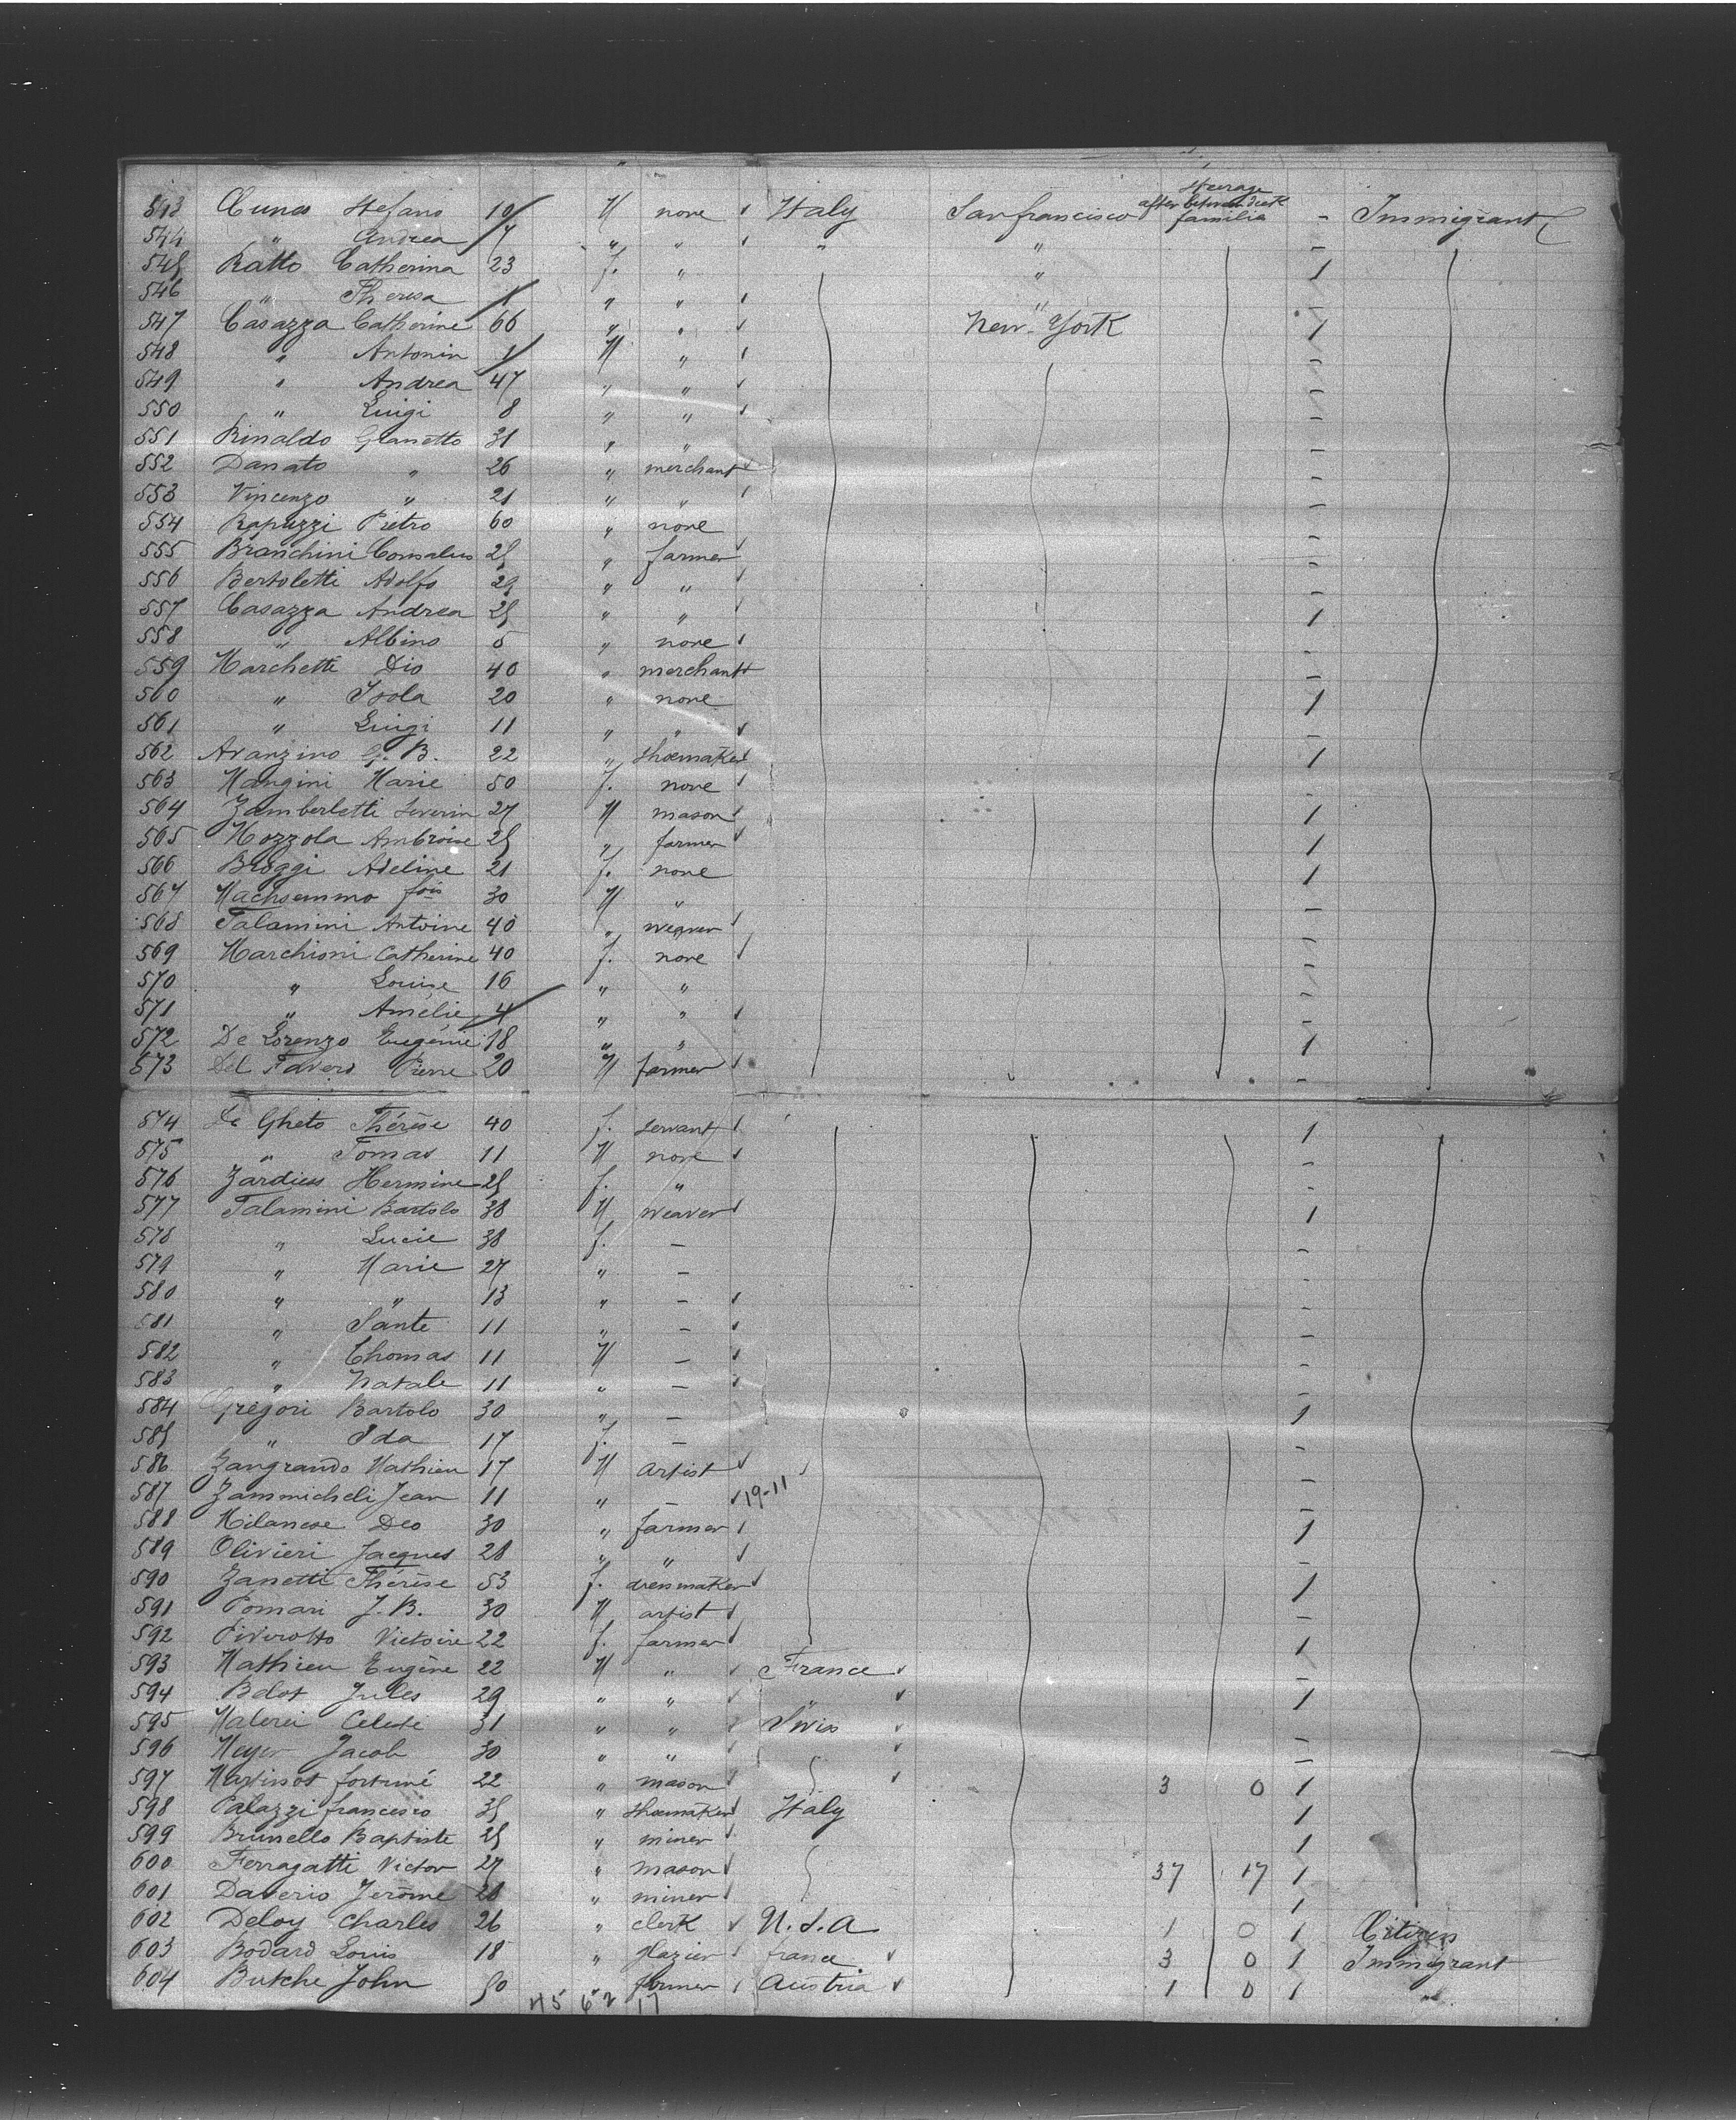 543 Cuneo Stefano 10 M none Italy San francisco Steerage after between deck familia - Immigrant
544 " Andrea 7 " " " " -
545 Ratto Catherina 23 f. " " 1
546 " Theresa 1 " " " -
547 Casazza Catherine 66 " " New-York 1
548 " Antonin 1 M " -
549 " Andrea 47 " " -
550 " Luigi 8 " " -
551 Rinaldo Gianetto 31 " " -
552 Danato " 26 " merchant -
553 Vincenzo " 21 " " -
554 Rapuzzi Pietro 60 " none -
555 Branchini 25 " farmer -
556 Bertoletti Adolfo 29 " " -
557 Casazza Andrea 25 " " 1
558 " Albino 5 " none -
559 Marchetti Dio 40 " merchant -
560 " Isola 20 " none 1
561 " Luigi 11 " " -
562 Avanzino G. B. 22 " shoemaker 1
563 Mangini Marie 50 f. none -
564 Zamberletti Severin 27 M mason 1
565 Mozzola Ambroise 25 " farmer 1
566 Broggi Adeline 21 f. none 1
567 30 M " -
568 Talamini Antoine 40 " weaver -
569 Marchioni Catherine 40 f. none -
570 " Louise 16 " " -
571 " Amelie 4 " " -
572 De Lorenzo Eugénie 18 " " 1
573 Del Favero Pierre 20 M farmer -
574 De Gheto Thérèse 40 f. servant 1
575 " Tomas 11 M none -
576 Hermine 25 f. " -
577 Talamini Bartolo 38 M weaver 1
578 " Lucie 38 f. - -
579 " Marie 27 " - -
580 " " 13 " - -
581 " Sante 11 " - -
582 " Thomas 11 M - -
583 " Natale 11 " - -
584 Gregori Bartolo 30 " - 1
585 " Ida 17 f. - -
586 Zangrando Mathieu 17 M artist -
587 Zammicheli Jean 11 " - 19-11 -
588 Milanese Deo 30 " farmer 1
589 Olivieri Jacques 28 " " -
590 Zanetti Thérèse 53 f. dressmaker 1
591 Pomari J. B. 30 M artist -
592 Piverotto Victoire 22 f. farmer 1
593 Mathieu Eugène 22 M " France -
594 Belot Jules 29 " " " 1
595 Celeste 31 " " Swiss -
596 Meyer Jacob 30 " " -
597 Martinot fortuné 22 " mason 3 0 1
598 Palazzi francesco 35 " shoemaker Italy 1
599 Brunello Baptiste 25 " miner 1
600 Ferragatti Victor 27 " mason 37 17 1
601 Daverio Jerôme 28 " miner 1
602 Deloy Charles 26 " clerk U.S.A 1 0 1 Citizen
603 Bodard Louis 18 " glazier france 3 0 1 Immigrant
604 Butche John 50 farmer Austria 1 0 1 "
45 62 17